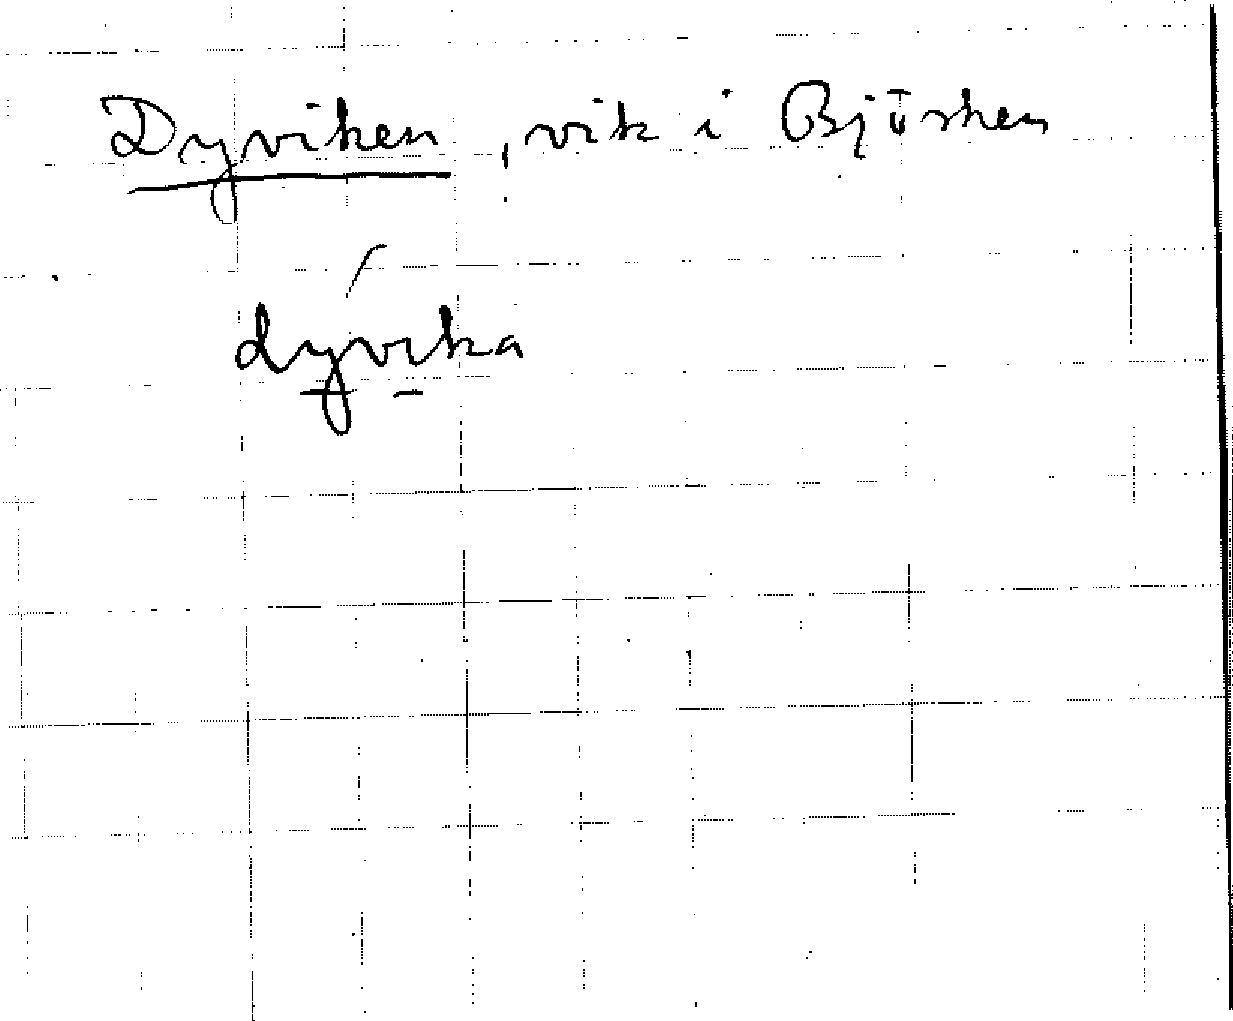 Dyviken, vik i Björken
dyvika